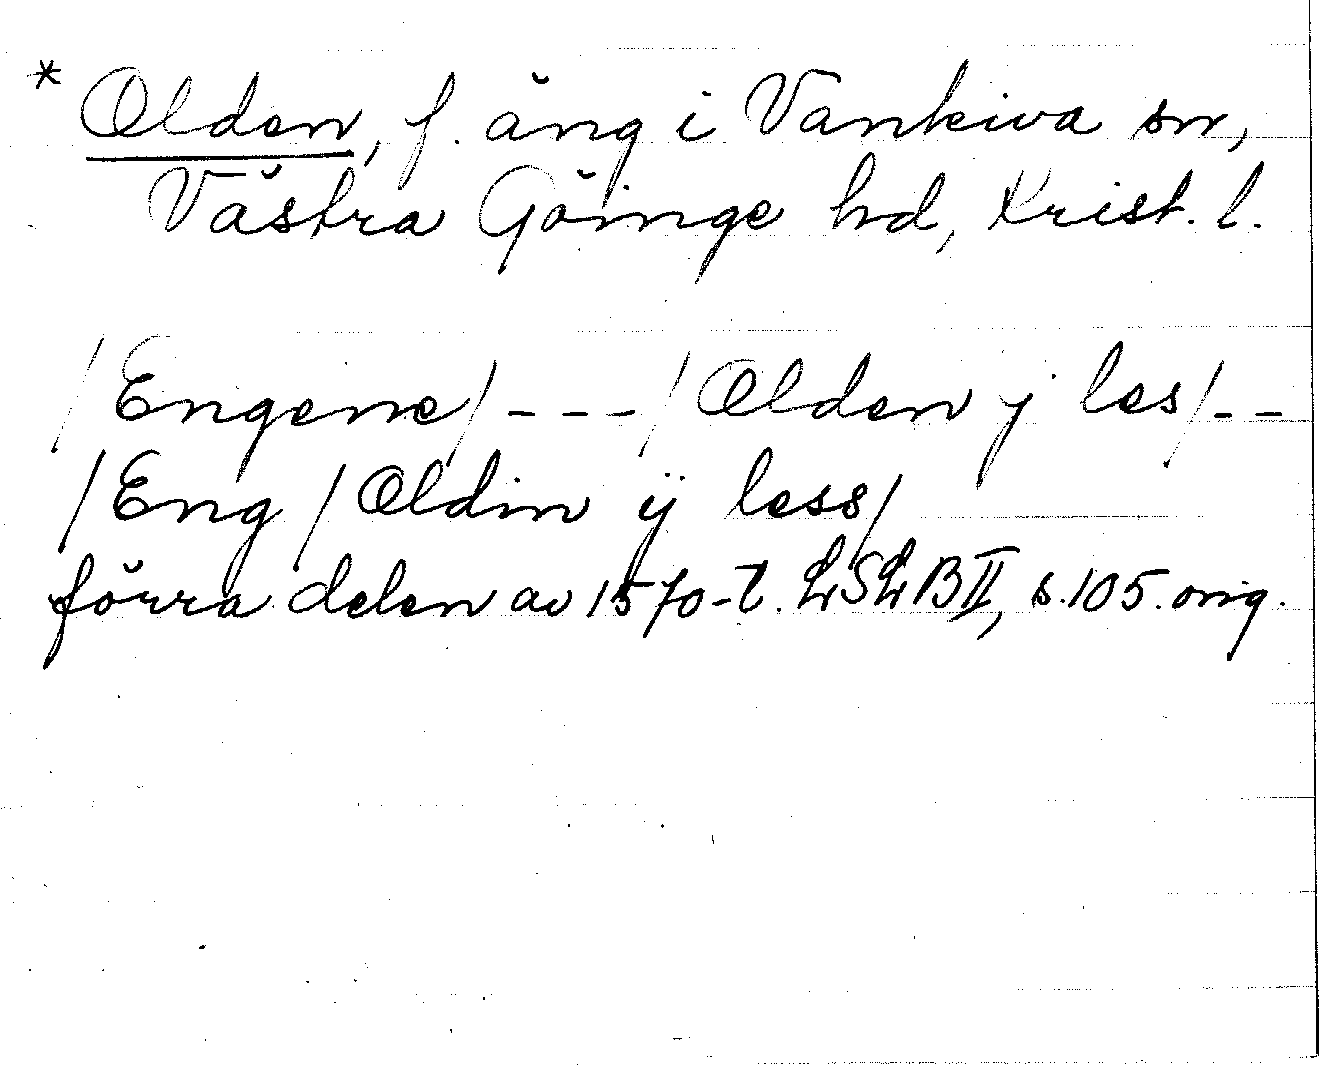 * Olden, f. äng i Vankiva sn,
Västra Göinge hd, Krist. l.
/Engene/ - - - /Olden y les/ - -
/Eng/Oldin ÿ less/
förra delen av 1570-t. LSLB II, s. 105. orig.